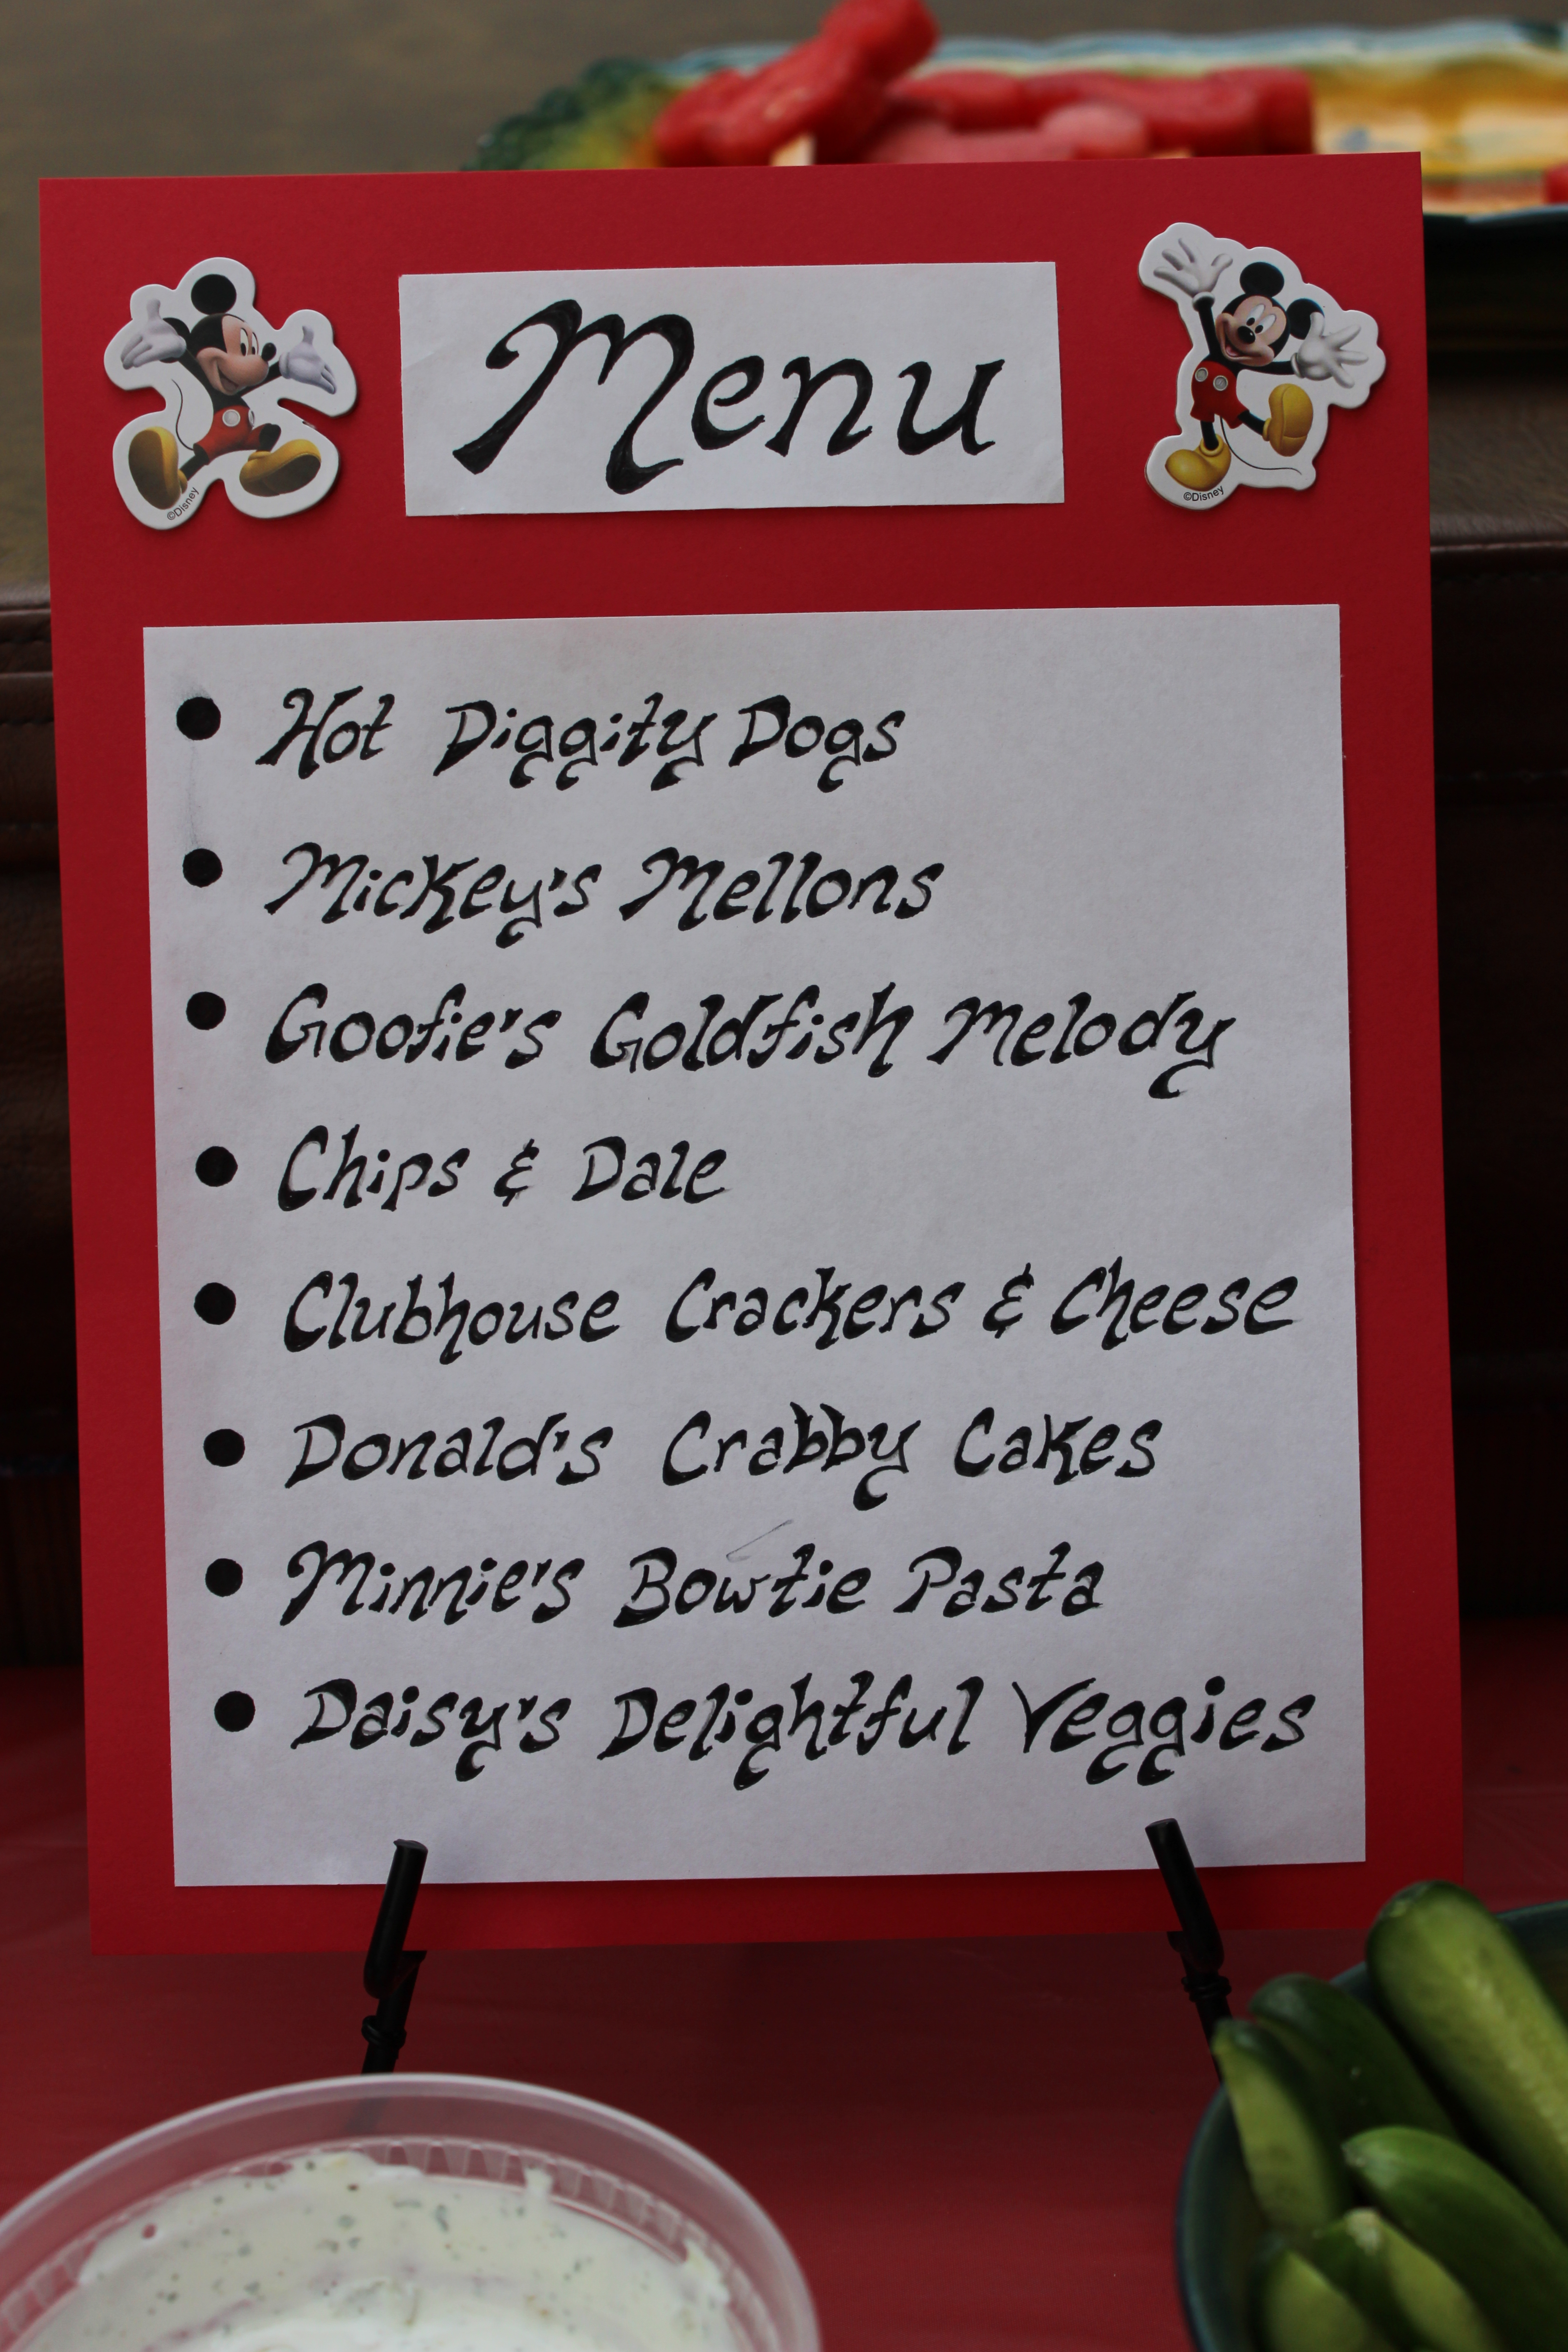 ©Disney
Menu
©Disney
• Hot Diggity Dogs
• Mickey's Mellons
• Goofie's Goldfish Melody
• Chips & Dale
• Clubhouse Crackers & Cheese
• Donald's Crabby Cakes
• Minnie's Bowtie Pasta
• Daisy's Delightful Veggies